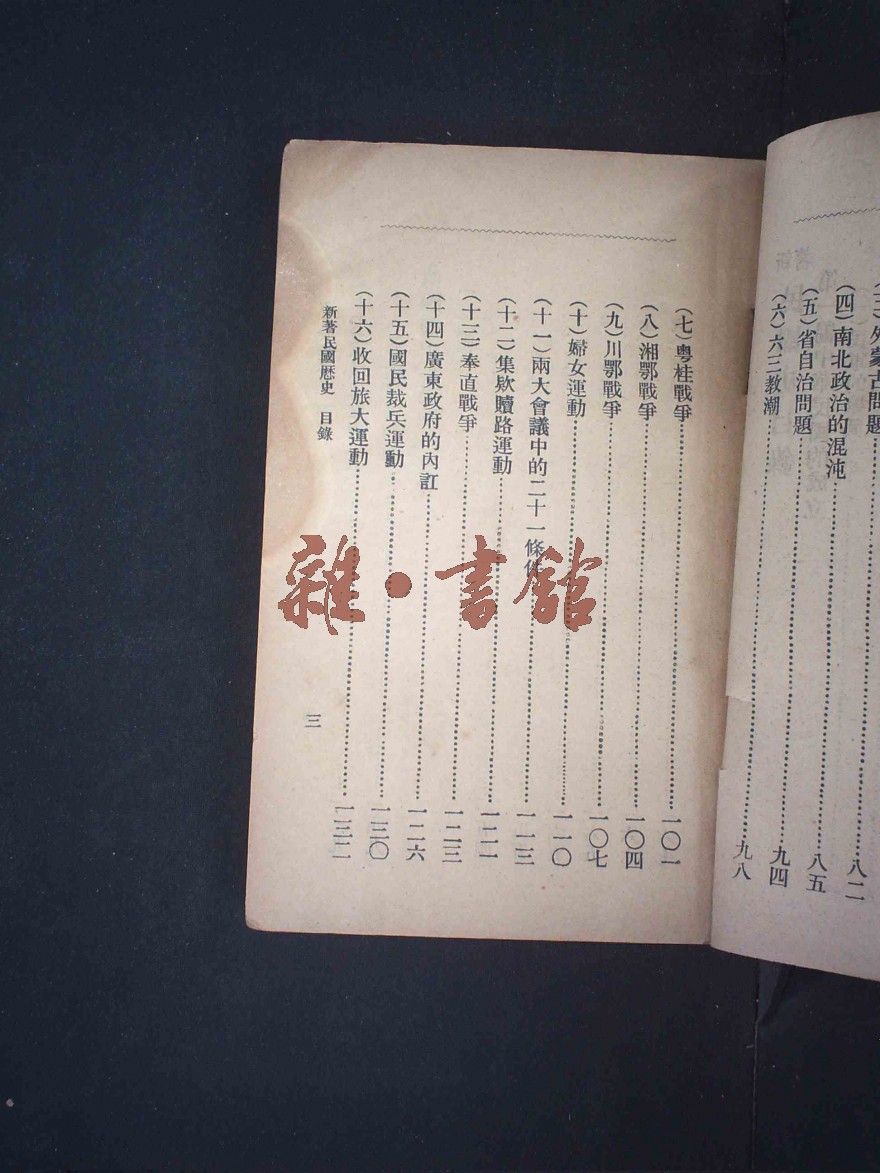 外蒙古問題
(四)南北政治的混沌……八二
(五)省自治問題……八五
(六)六三教潮……九四
九八
(七)粵桂戰爭……一〇一
(八)湘鄂戰爭……一〇四
(九)川鄂戰爭……一〇七
(十)婦女運動……一一〇
(十一)兩大會議中的二十一條件……一一三
(十二)集欵贖路運動……一二一
(十三)奉直戰爭……一二三
(十四)廣東政府的內訌……一二六
(十五)國民裁兵運動……一三〇
(十六)收回旅大運動……一三二
新著民國歷史 目錄
三
雜·書館